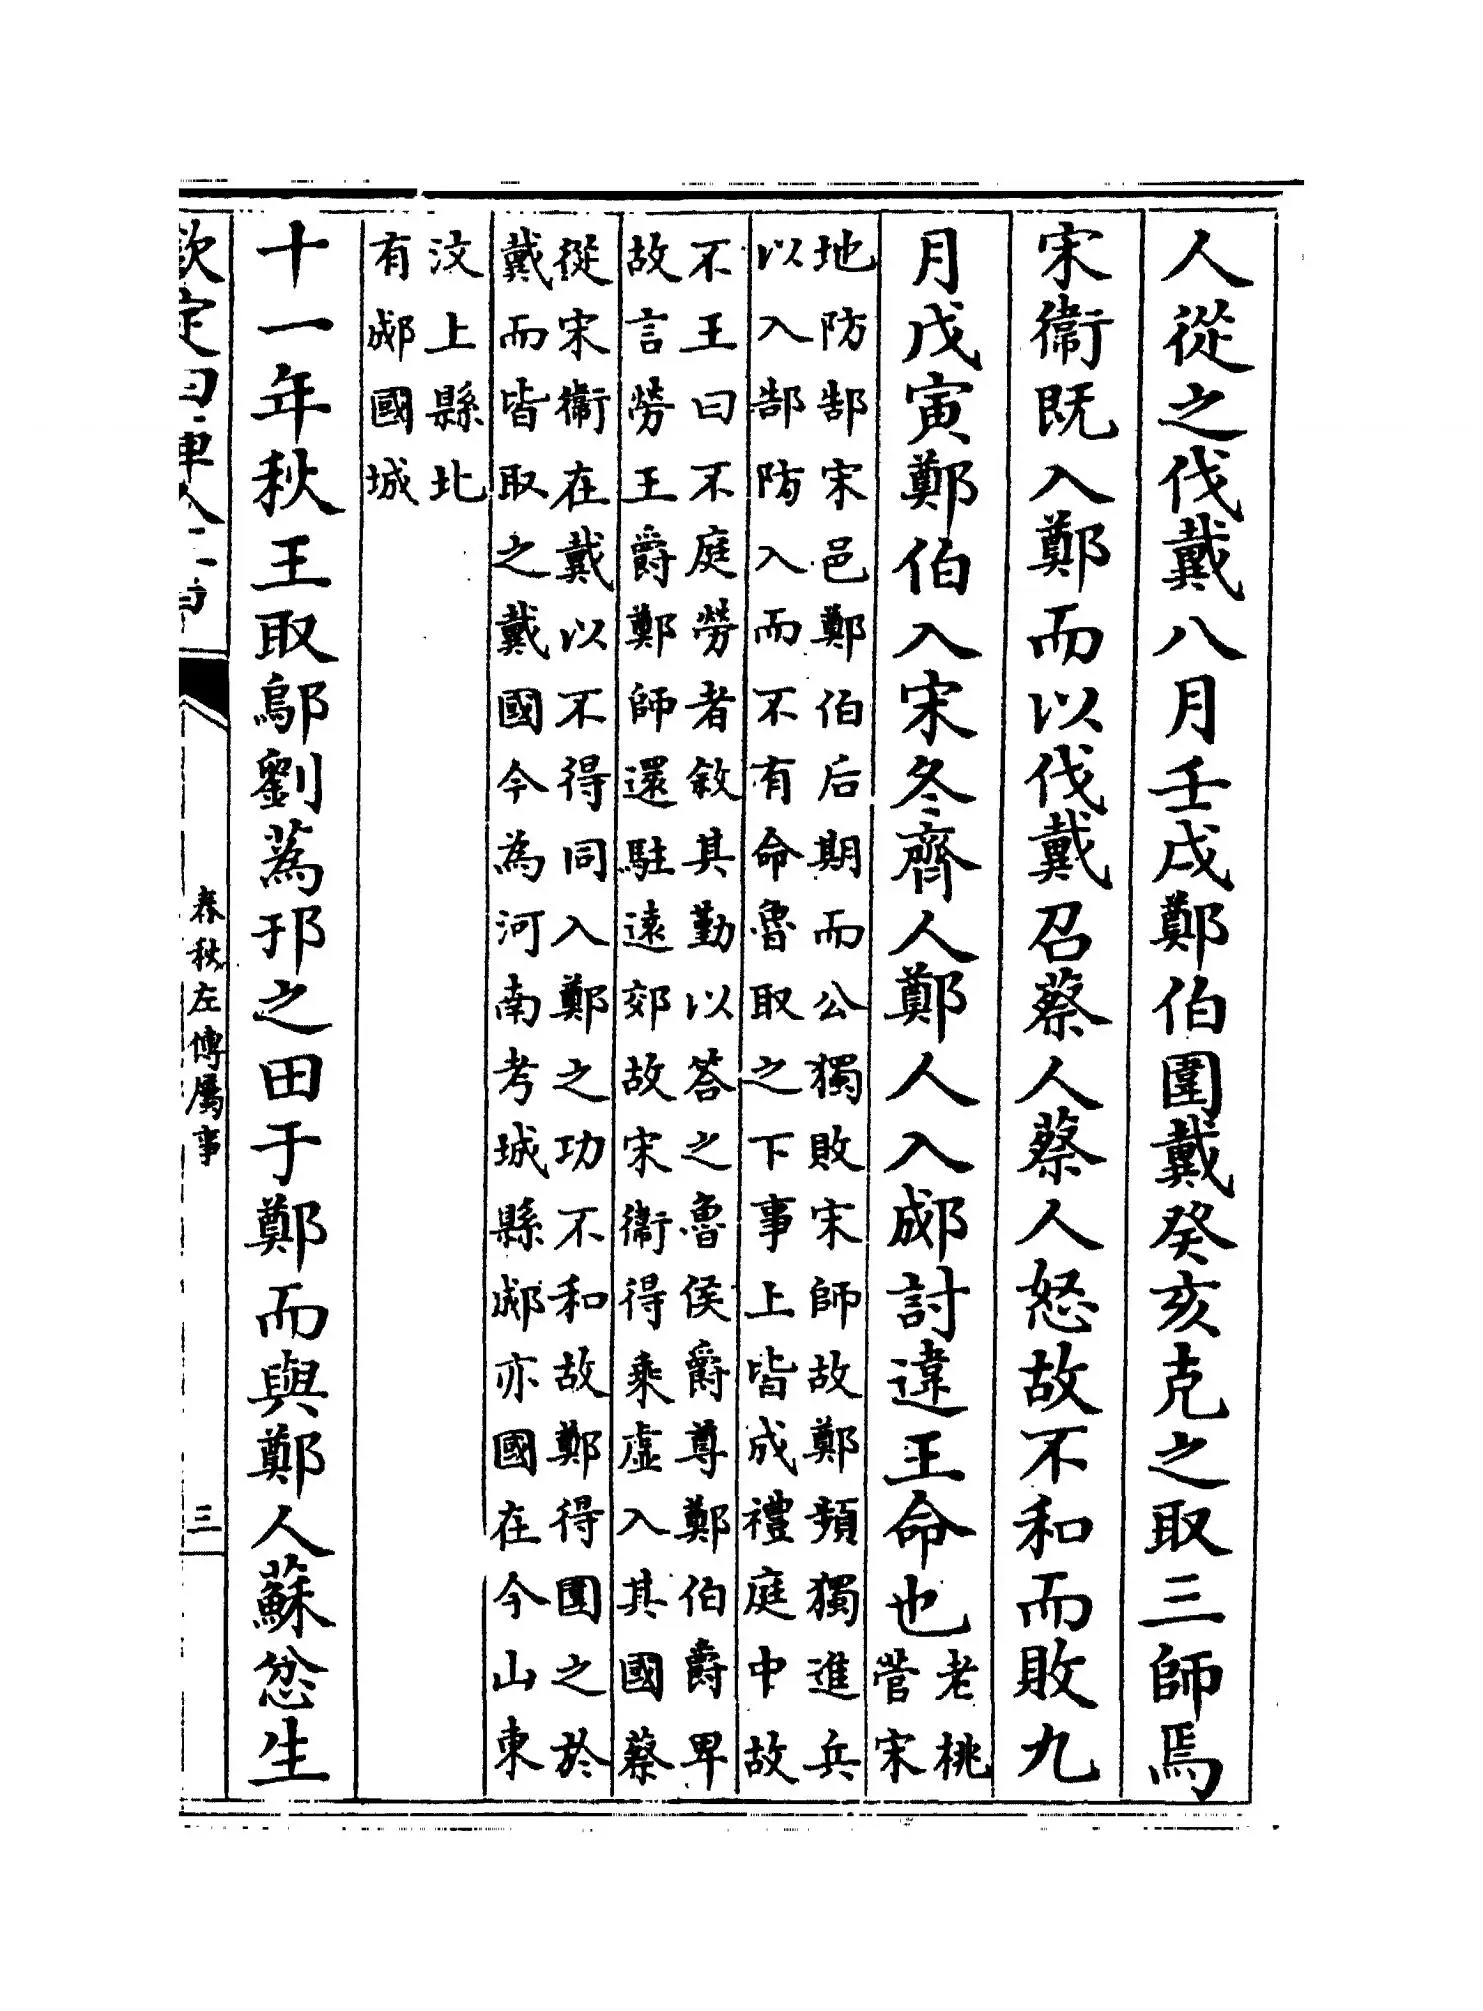 人從之伐戴八月壬戌鄭伯圍戴癸亥克之取三師焉
宋衞既入鄭而以伐戴召蔡人蔡人怒故不和而敗九
月戊寅鄭伯入宋冬齊人鄭人入郕討違王命也
老桃
菅宋
地防郜宋邑鄭伯后期而公獨敗宋師故鄭頻獨進兵
以入郜防入而不有命魯取之下事上皆成禮庭中故
不王曰不庭勞者敘其勤以答之魯侯爵尊鄭伯爵卑
故言勞王爵鄭師還駐遠郊故宋衞得乘虛入其國蔡
從宋衞在戴以不得同入鄭之功不和故鄭得圍之於
戴而皆取之戴國今為河南考城縣郕亦國在今山東
汶上縣北
有郕國城
十一年秋王取鄔劉蒍邘之田于鄭而與鄭人蘇忿生
欽定四庫全書
春秋左傳屬事
三